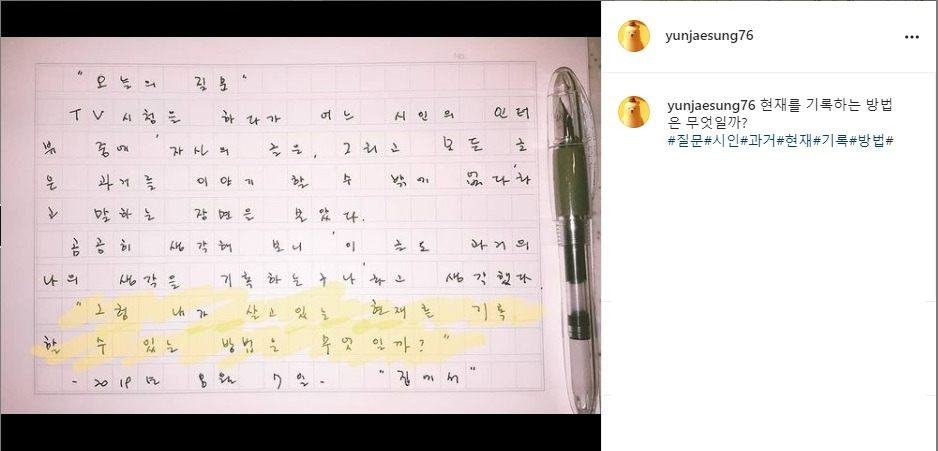 No.
"오늘의 질문"
TV시청을 하다가 어느 시인의 인터
뷰 중에 '자신의 글은, 그리고 모든 글
은 과거를 이야기 할 수 밖에 없다'라
고 말하는 장면을 보았다.
곰곰히 생각해 보니 '이 글도 과거의
나의 생각을 기록하는구나'하고 생각했다
"그럼 내가 살고 있는 현재를 기록
할 수 있는 방법은 무엇일까?"
- 2019년 8월 7일. "집에서"
yunjaesung76
yunjaesung76 현재를 기록하는 방법
은 무엇일까?
#질문#시인#과거#현재#기록#방법#